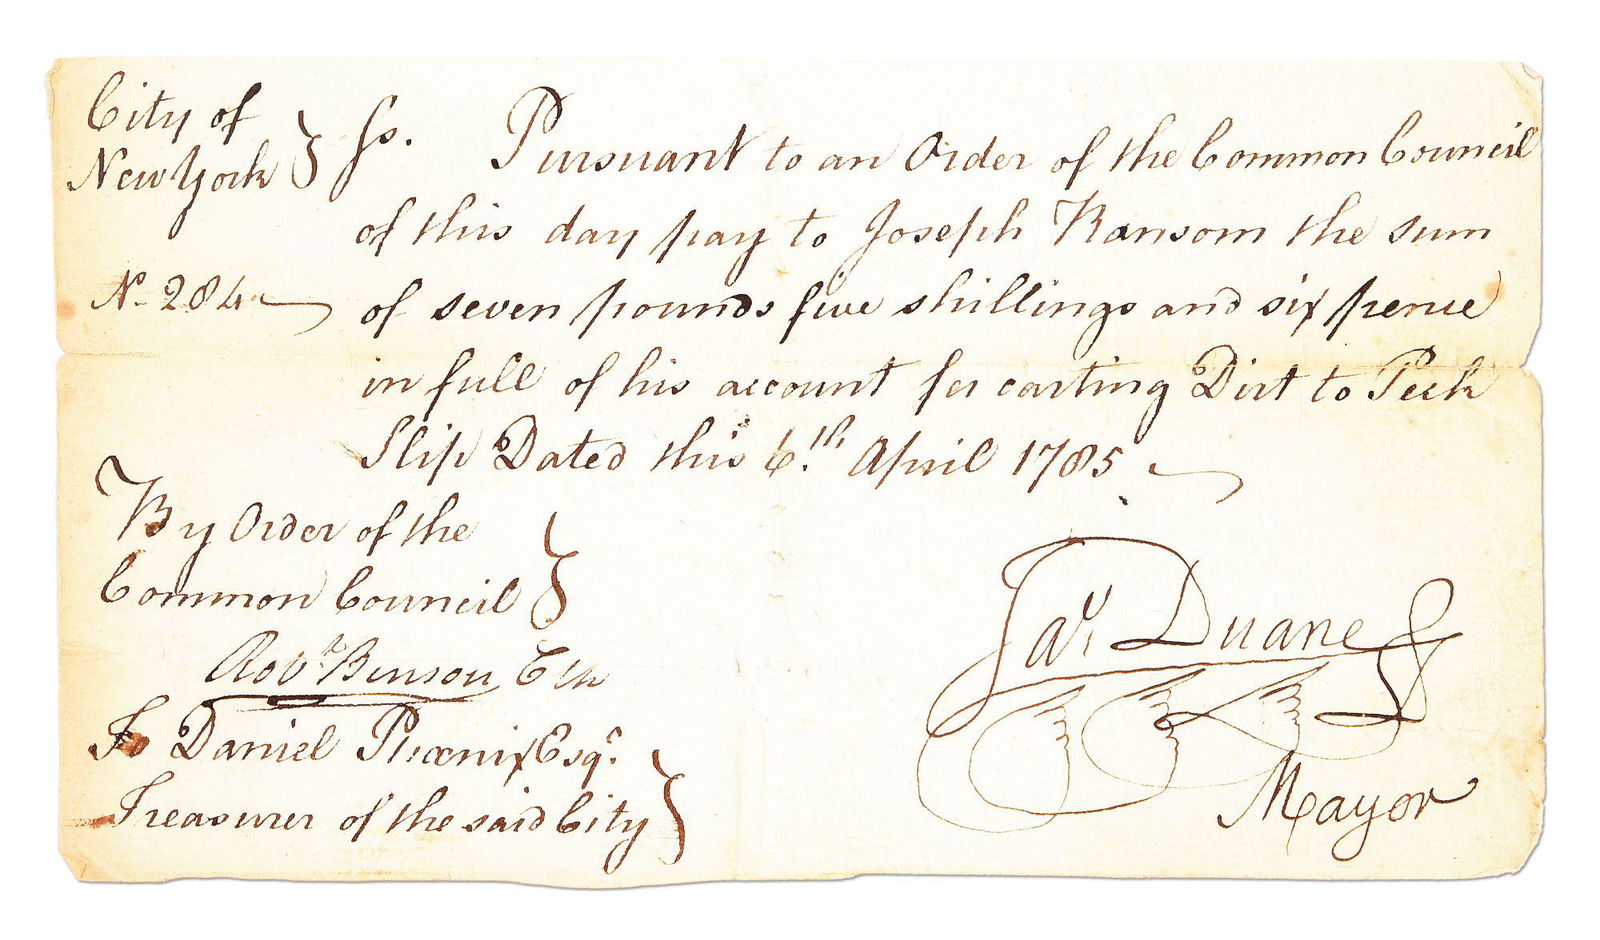 City of
New York } ss. Pursuant to an Order of the Common Council
of this day pay to Joseph Ransom the sum
No. 284 of seven pounds five shillings and six pence
in full of his account for carting Dirt to Peck
Slip Dated this 6.th April 1785
By Order of the
Common Council }
Robt. Benson Clk
To Daniel Phoenix Esqr.
Treasurer of the said City }
Jas. Duane
Mayor